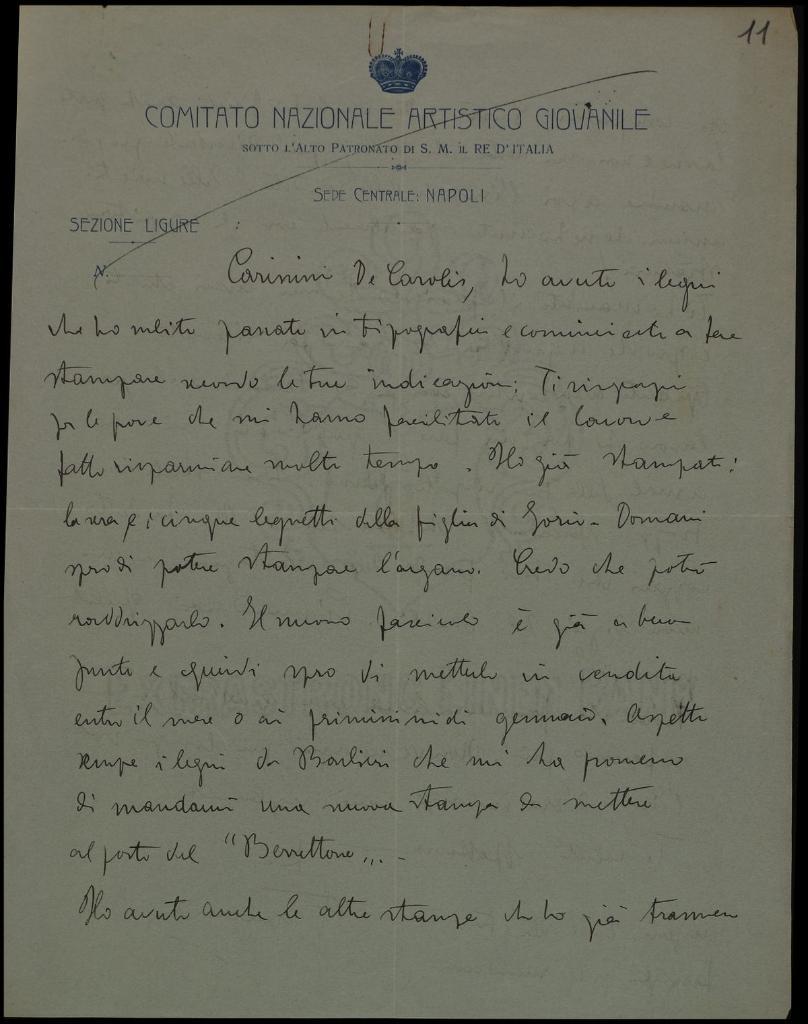 11
COMITATO NAZIONALE ARTISTICO GIOVANILE
SOTTO L'ALTO PATRONATO DI S. M. IL RE D'ITALIA
SEDE CENTRALE: NAPOLI
SEZIONE LIGURE
N.
Carissimi De Carolis, ho avuto i legni
che ho subito passati in tipografia e cominciato a fare
stampare secondo le tue indicazioni; Ti ringrazio
per le prove che mi hanno facilitato il lavoro e
fatto risparmiare molto tempo. Ho già stampati:
la sera e i cinque legnetti della figlia di Iorio - Domani
spero di potere stampare l'organo. Credo che potrò
raddrizzarlo. Il nuovo fascicolo è già a buon
punto e quindi spero di metterlo in vendita
entro il mese o ai primissimi di gennaio. Aspetto
sempre i legni da Barbieri che mi ha promesso
di mandarmi una nuova stampa da mettere
al posto del "Berrettone„. -
Ho avuto anche le altre stampe che ho già trasmesse